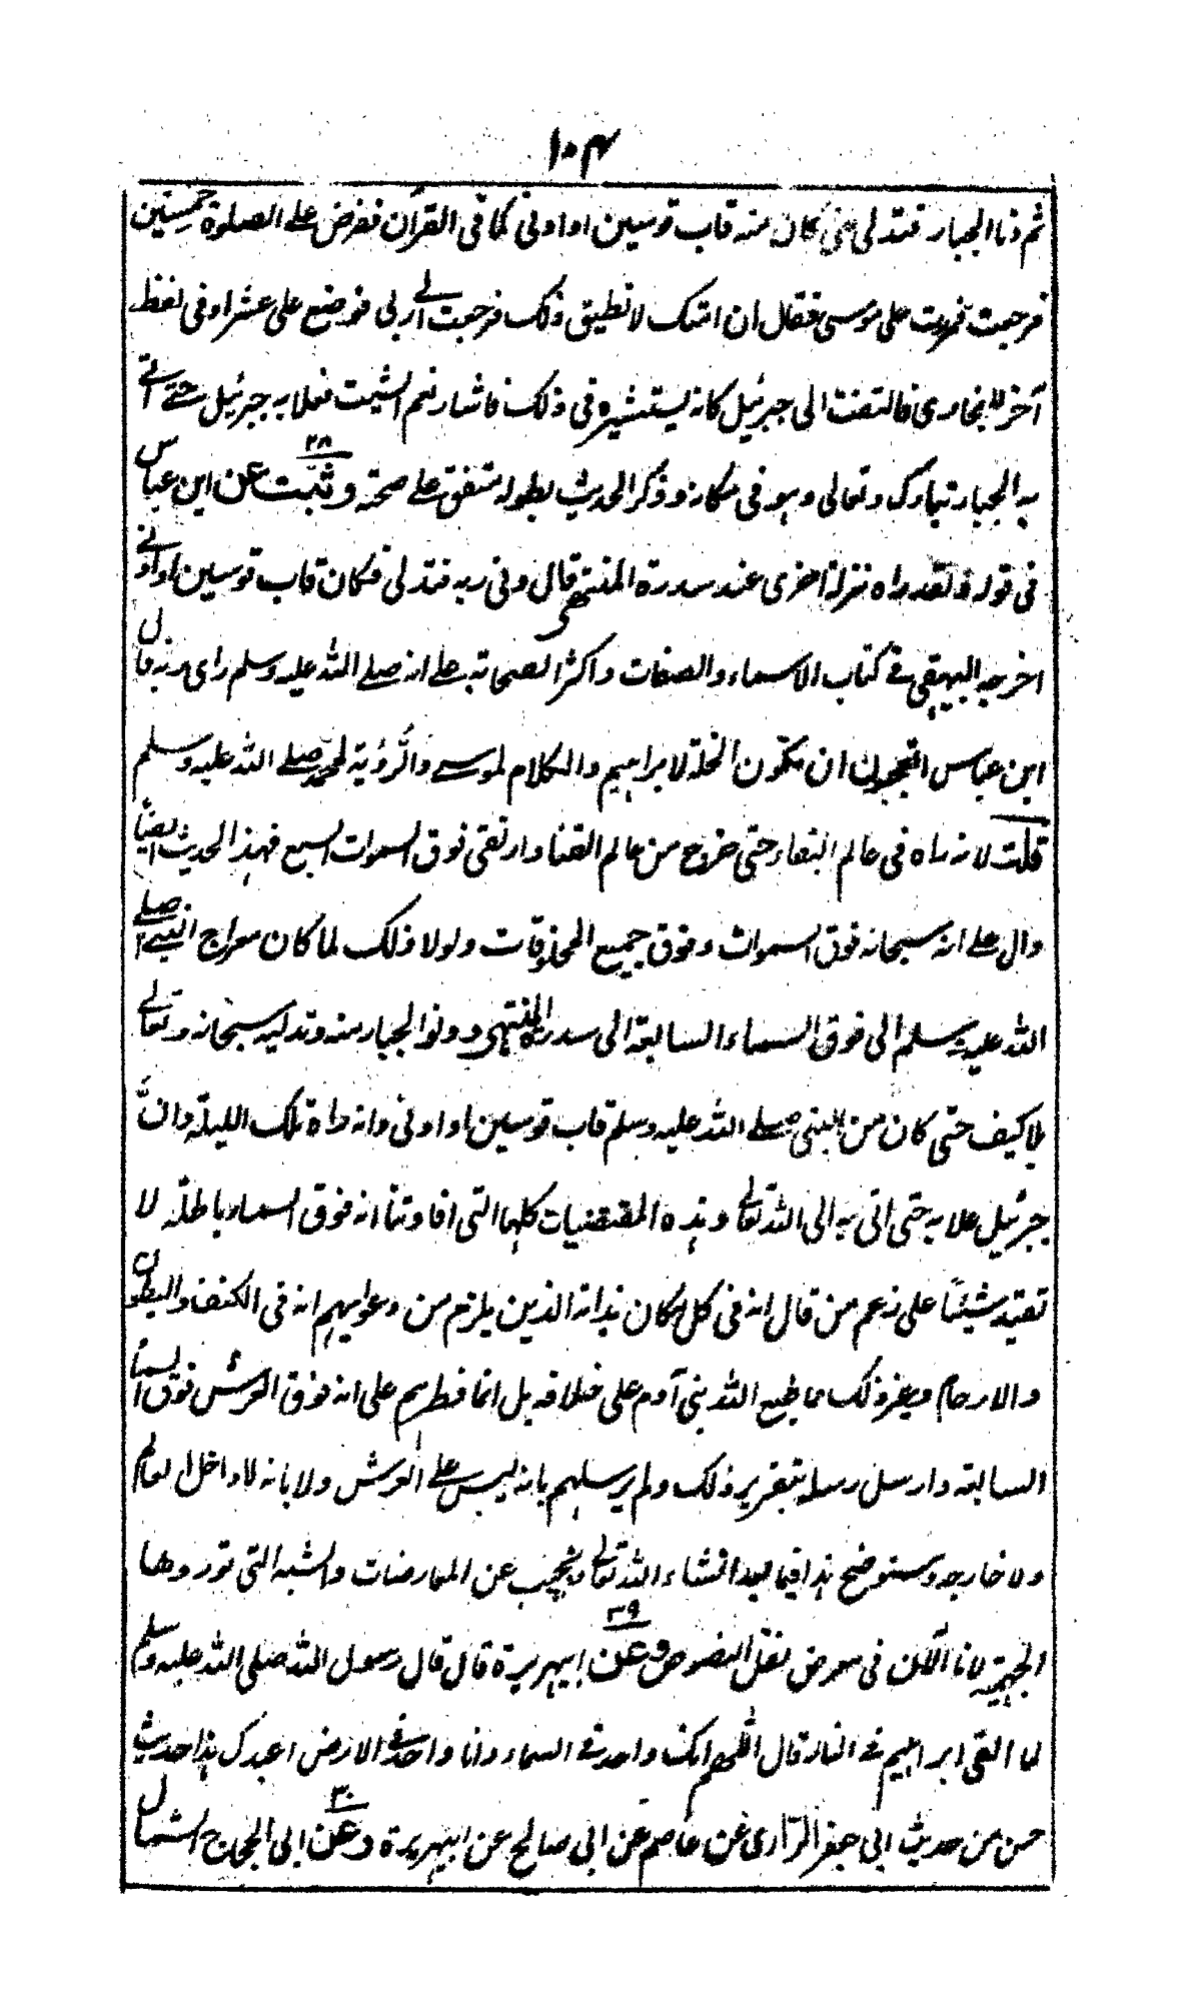 ١٠٤
ثم دنا الجبار فتدلى حتى كان منه قاب قوسين او ادنى كما فى القرآن ففرض على الصلوة خمسين
فرجعت فمررت على موسى فقال ان امتك لا تطيق ذلك فرجعت الى ربى فوضع على عشرا وفى لفظ
آخر للبخارى فالتفت الى جبرئيل كانه يستشيره فى ذلك فاشار نعم ان شئت فعلا به جبرئيل حتى اتى
به الجبار تبارك وتعالى وهو فى مكانه وذكر الحديث بطوله متفق على صحته ٢٨ وثبت عن ابن عباس
فى قوله ولقد راه نزلة اخرى عند سدرة المنتهى قال دنى ربه فتدلى فكان قاب قوسين او ادنى
اخرجه البيهقى فى كتاب الاسماء والصفات واكثر الصحابة على انه صلى الله عليه وسلم راى ربه قال
ابن عباس اتعجبون ان تكون الخلة لابراهيم والكلام لموسى والرؤية لمحمد صلى الله عليه وسلم
قلت لانه راه فى عالم البقاء حتى خرج من عالم الفناء وارتقى فوق السموات السبع فهذا الحديث ايضا
دال على انه سبحانه فوق السموات وفوق جميع المخلوقات ولولا ذلك لما كان معراج النبى صلى
الله عليه وسلم الى فوق السماء السابعة الى سدرة المنتهى ودنو الجبار منه وتدليه سبحانه وتعالى
بلا كيف حتى كان من النبى صلى الله عليه وسلم قاب قوسين او ادنى وانه راه تلك الليلة وان
جبرئيل علا به حتى اتى به الى الله تعالى وهذه المقتضيات كلها التى افادتنا انه فوق السماء باطلة لا
تفيد شيئا على زعم من قال انه فى كل مكان بذاته الذين يلزم من دعواهم انه فى الكنف والبطون
والارحام وغير ذلك مما طبع الله بنى آدم على خلافه بل انما فطرهم على انه فوق العرش فوق السماء
السابعة وارسل رسله بتقرير ذلك ولم يرسلهم بانه ليس على العرش ولا بانه لا داخل العالم
ولا خارجه وسنوضح هذا فيما بعد انشاء الله تعالى ونجيب عن المعارضات والشبه التى توردها
الجهمية لانا الآن فى معرض نقل النصوص ٢٩ وعن ابى هريرة قال قال رسول الله صلى الله عليه وسلم
لما القى ابراهيم فى النار قال اللهم انك واحد فى السماء وانا واحد فى الارض اعبدك هذا حديث
حسن من حديث ابى جعفر الرازى عن عاصم عن ابى صالح عن ابى هريرة ٣٠ وعن ابى الحجاج الثمالى